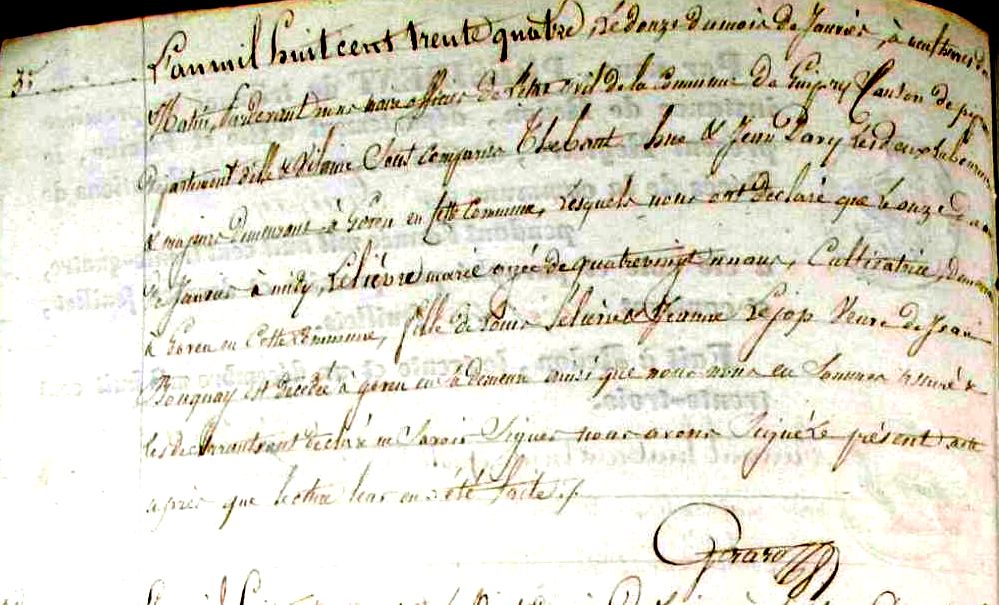 3:
L'an mil huit cent trente quatre, le douze du mois de Janvier, à neuf heures du
Matin, Pardevant nous maire officier de l'état Civil de la Commune de Guipry Canton de pipriac
Département d'ille & Vilaine Sont Comparus Thebault hue & Jean Davy les deux laboureurs
& majeurs demeurant à goven en cette Commune, lesquels nous ont déclaré que le onze
de Janvier à midy, Lelièvre marie agée de quatrevingt un ans, Cultivatrice, demeurant
à goven en Cette Commune, fille de Louis Lelievre & Jeanne Lejop Veuve de Jean
Bouguay est décédée à goven en Sa demeure ainsi que nous nous en Sommes assuré &
les déclarants ont déclaré ne Savoir Signer nous avons Signé le présent acte
après que lecture leur en a été faite ./.
Gérard